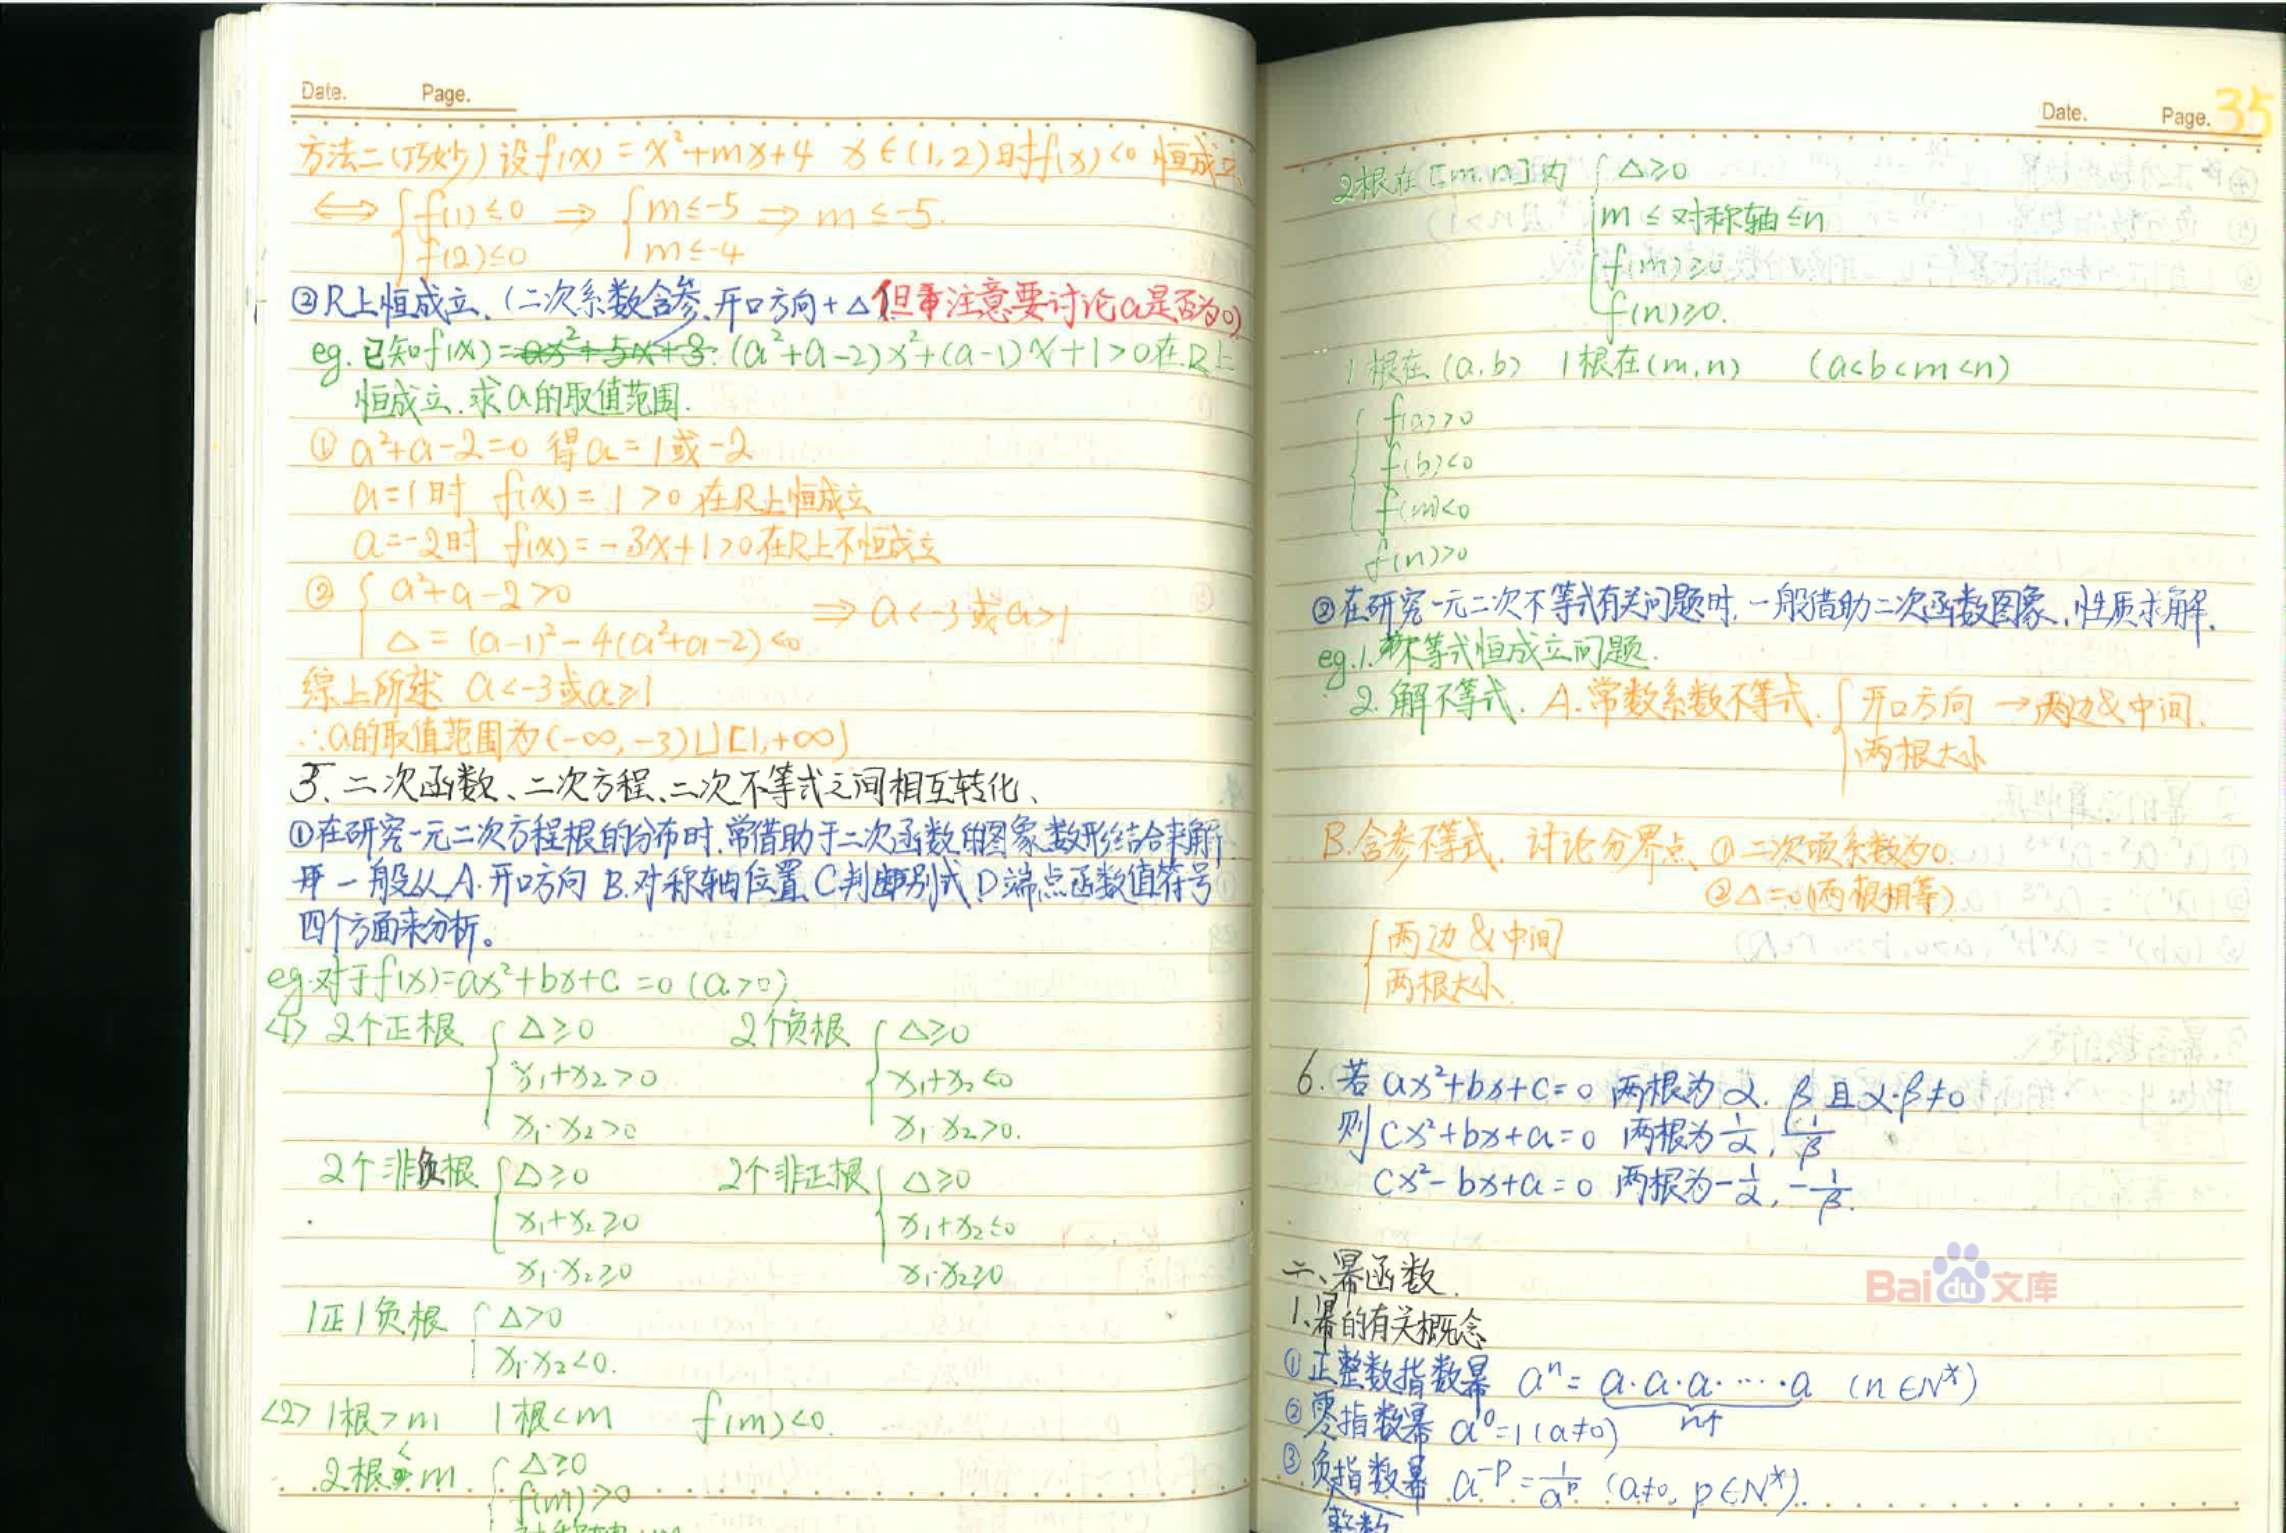 Date. Page.
方法二(巧妙) 设f(x) = x²+mx+4 x∈(1,2)时f(x)<0 恒成立
⟺ { f(1)≤0 ⇒ { m≤-5 ⇒ m≤-5.
f(2)≤0 m≤-4
②R上恒成立、(二次系数含参、开口方向+△ (但要注意要讨论a是否为0)
eg. 已知f(x)= (a²+a-2)x²+(a-1)x+1>0在R上
恒成立.求a的取值范围.
① a²+a-2=0 得a=1或-2
a=1时 f(x)=1>0在R上恒成立
a=-2时 f(x)=-3x+1>0在R上不恒成立
② { a²+a-2>0 ⇒ a<-3或a>1
△=(a-1)²-4(a²+a-2)<0
综上所述 a<-3或a≥1
∴a的取值范围为(-∞,-3)∪[1,+∞)
3、二次函数、二次方程、二次不等式之间相互转化、
①在研究一元二次方程根的分布时,常借助于二次函数的图象数形结合来解
一般从A.开口方向 B.对称轴位置 C判别式 D端点函数值符号
四个方面来分析。
eg.对于f(x)=ax²+bx+c=0(a>0)
<1> 2个正根 { △≥0 2个负根 { △≥0
x₁+x₂>0 x₁+x₂<0
x₁·x₂>0 x₁·x₂>0.
2个非负根 { △≥0 2个非正根 { △≥0
x₁+x₂≥0 x₁+x₂≤0
x₁·x₂≥0 x₁·x₂≥0
1正1负根 { △>0
x₁·x₂<0.
<2> 1根>m 1根<m f(m)<0.
2根<m { △≥0
f(m)>0
Date. Page. 35
2根在[m,n]内 { △≥0
m≤对称轴≤n
f(m)≥0
f(n)≥0.
1根在(a,b) 1根在(m,n) (a<b<m<n)
{ f(a)>0
f(b)<0
f(m)<0
f(n)>0
②在研究一元二次不等式有关问题时,一般借助二次函数图象、性质求解.
eg.1.不等式恒成立问题.
2.解不等式. A.常数系数不等式. { 开口方向 →两边&中间.
两根大小
B.含参不等式. 讨论分界点 ①二次项系数为0.
②△=0(两根相等)
{ 两边&中间
两根大小.
6. 若ax²+bx+c=0 两根为α.β且α·β≠0
则cx²+bx+a=0 两根为1/α,1/β
cx²-bx+a=0 两根为-1/α,-1/β.
Baidu文库
二、幂函数.
1、幂的有关概念
①正整数指数幂 aⁿ=a·a·a·…·a (n∈N*)
n个
②零指数幂 a⁰=1(a≠0)
③负指数幂 a⁻ᵖ=1/aᵖ (a≠0, p∈N*).
整数